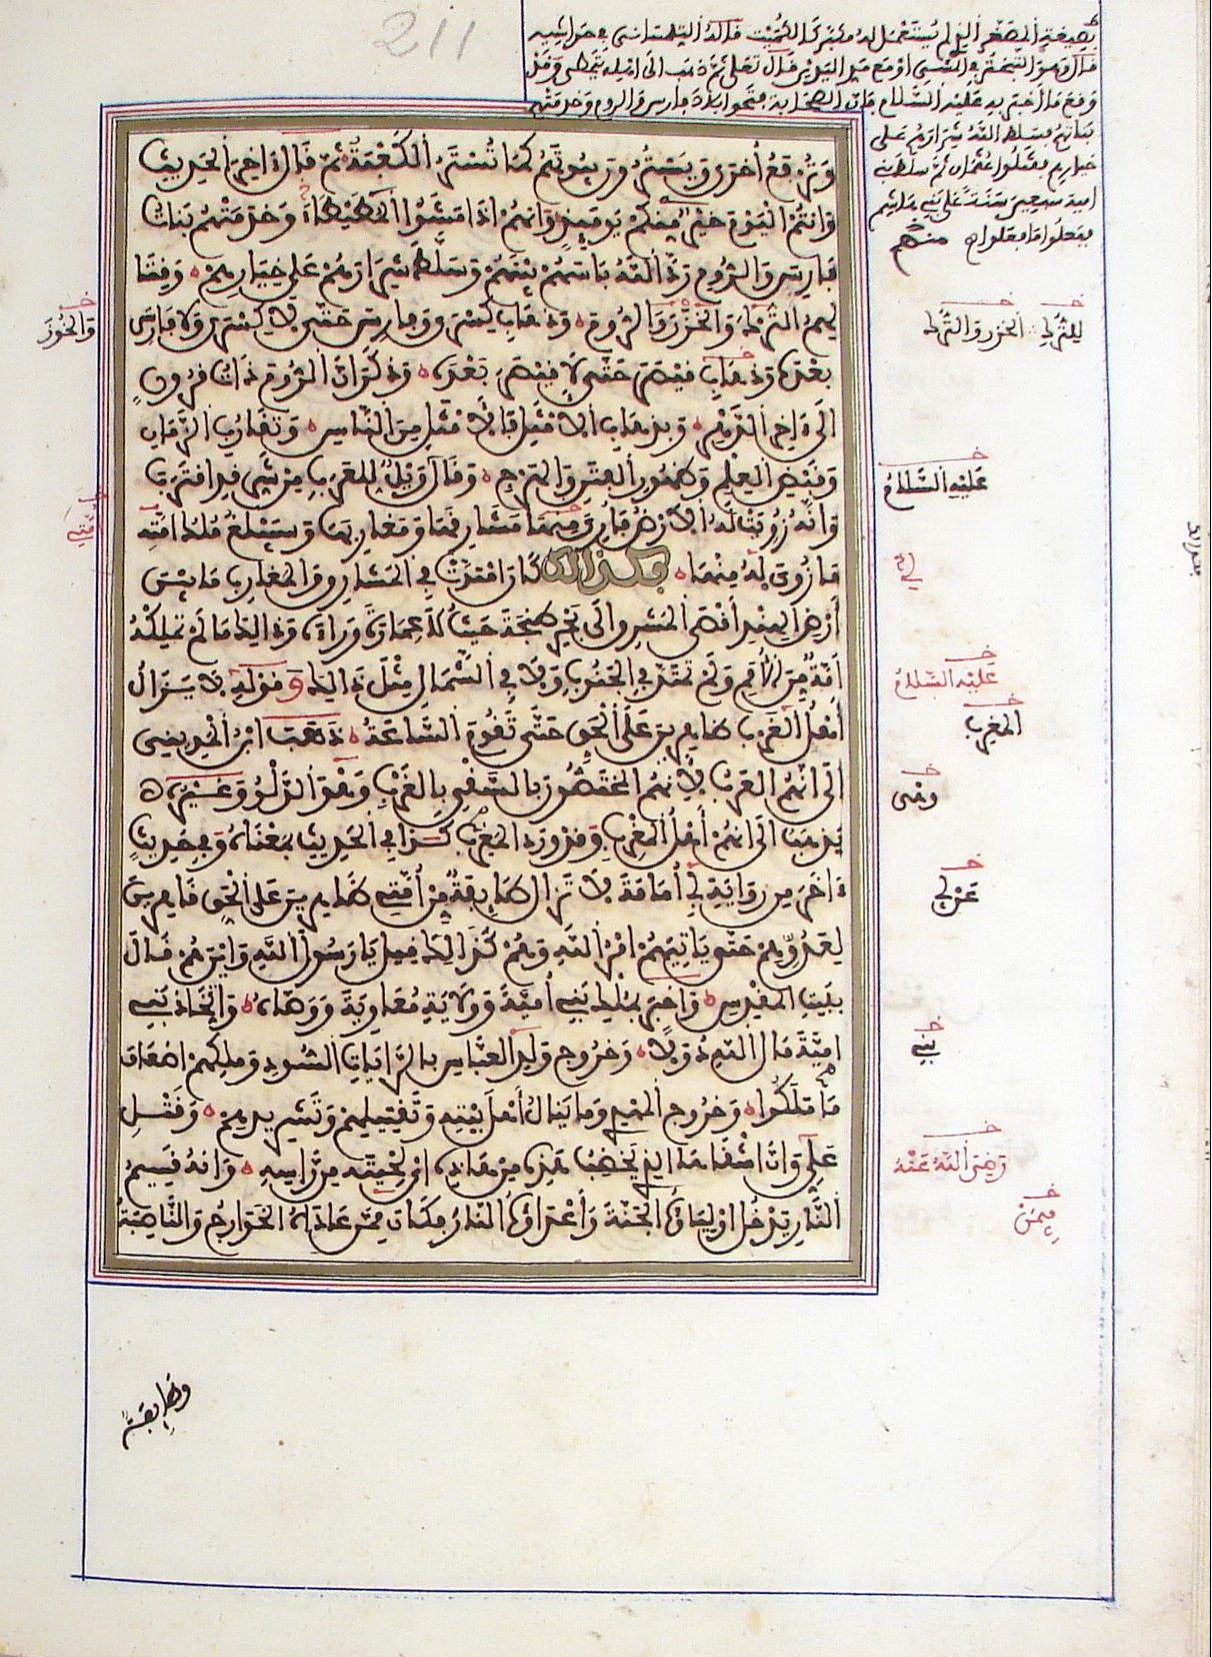 بصيغة المصغر الذي لم يستعمل له مكبر كالكميت قاله التلمساني في حواشيه
قال وهو التبختر في المشي او مع مد اليدين قال تعلى ثم ذهب الى اهله يتمطى وقد
وقع ما اخبر به عليه السلام فإن الصحابة فتحوا بلاد فارس والروم وخدمتهم
بناتهم فسلط الله شرارهم على
خيارهم فقتلوا عثمان ثم سلط بني
امية سبعين سنة على بني هاشم
ففعلوا ما فعلوا منهم
وترفع أخرى ويستر وبيوتكم كما تستر الكعبة ثم قال ءاخر الحديث
وانتم اليوم خير منكم يومئذ وانهم اذا مشوا المطيطاء وخدمتهم بنات
فارس والروم رد الله بأسهم بينهم وسلط شرارهم على خيارهم وقتا
لهم الترك والخزر والروم وذهاب كسرى وفارس حتى لا كسرى ولا فارس
بعده وذهاب قيصر حتى لا قيصر بعده وذكر ان الروم ذات قرون
الى ءاخر الدهر وبذهاب الامثل فالامثل من الناس وتقارب الزمان
وقبض العلم وظهور الفتن والهرج وقال ويل للعرب من شر قد اقترب
وانه زويت له الارض فأري مشارقها ومغاربها وسيبلغ ملك امته
ما زوي له منها فكذلك كان امتدت في المشارق والمغارب ما بين
أرض الهند أقصى المشرق الى بحر طنجة حيث لا عمارة وراءه وذلك ما لم تملكه
أمة من الأمم ولم تمتد في الجنوب ولا في الشمال مثل ذلك وقوله لا يزال
أهل الغرب ظاهرين على الحق حتى تقوم الساعة ذهب ابن المديني
الى انهم العرب لأنهم المختصون بالسقي بالغرب وهو الدلو وغيره
يذهب الى انهم أهل المغرب وقد ورد المغرب كذا في الحديث بمعناه وفي حديث
ءاخر من رواية أبي أمامة لا تزال طايفة من أمتي ظاهرين على الحق قاهرين
لعدوهم حتى ياتيهم امر الله وهم كذلك قيل يا رسول الله واين هم قال
ببيت المقدس واخبر بملك بني أمية وولاية معاوية ووصاه واتخاذ بني
امية مال الله دولا وخروج ولد العباس بالرايات السود وملكهم اضعاف
ما ملكوا وخروج المهدي وما ينال أهل بيته وتقتيلهم وتشريدهم وقتل
علي وان اشقاها الذي يخضب هذه من هذه اي لحيته من راسه وانه قسيم
النار يدخل اولياؤه الجنة وأعداؤه النار فكان فمن عاداه الخوارج والناصبة
والخوز
للترك الخزر والترك
عليه السلام
عليه السلام
المغرب
عن أبي
بني
رضي الله عنه
فيمن
وطايفة